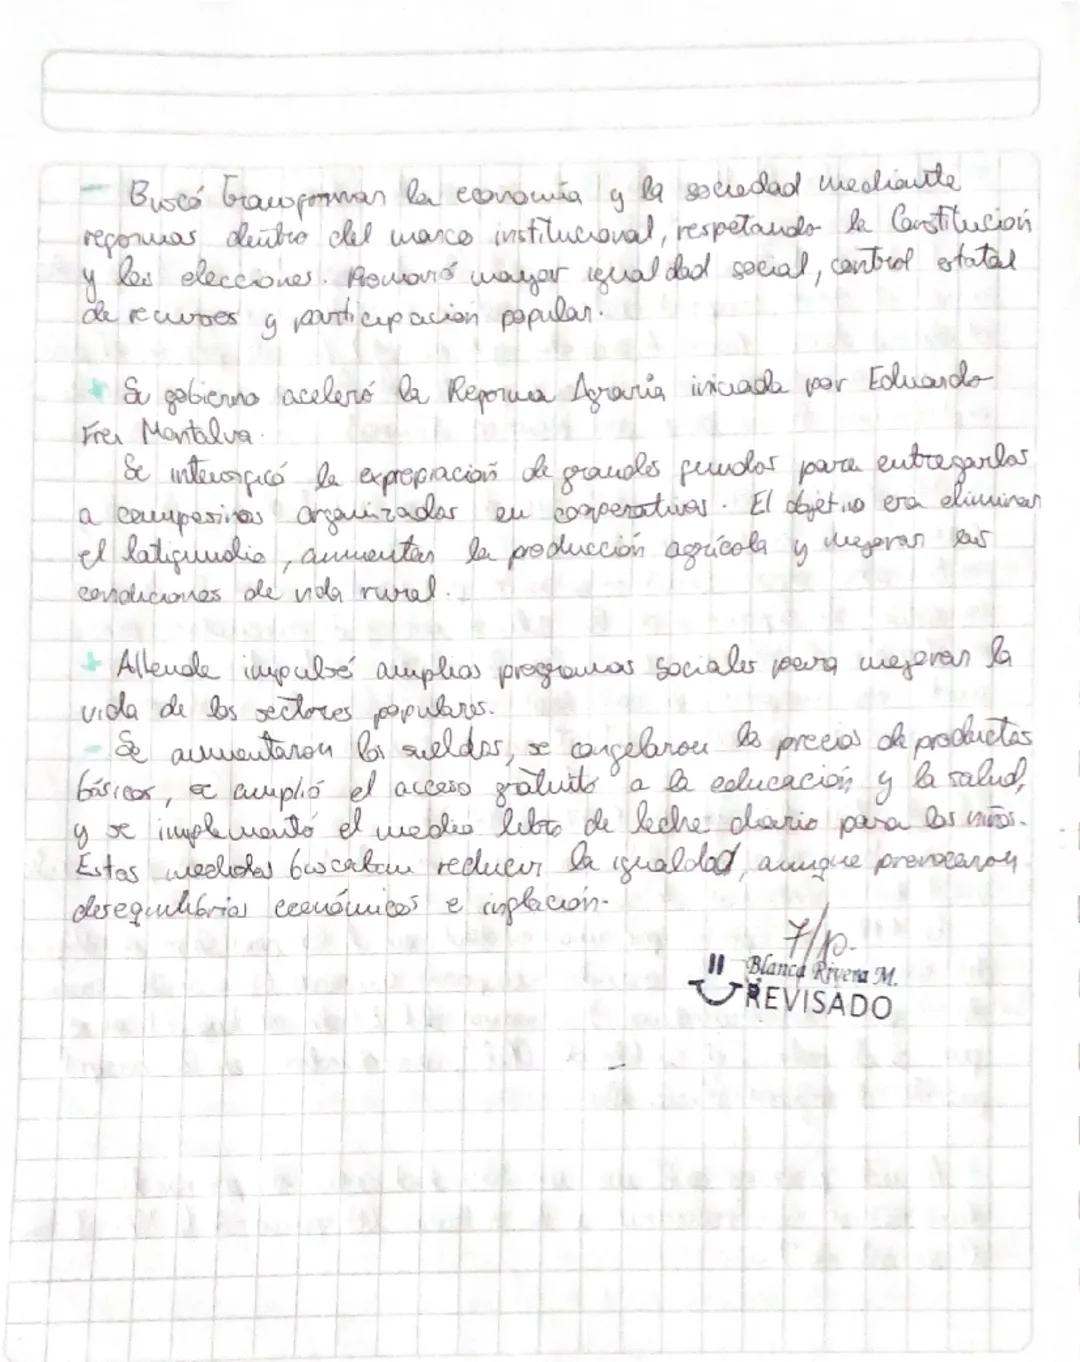 - Buscó transformar la economía y la sociedad mediante
reformas dentro del marco institucional, respetando la Constitución
y las elecciones. Promovió mayor igualdad social, control estatal
de recursos y participación popular.
+ Su gobierno aceleró la Reforma Agraria iniciada por Eduardo
Frei Montalva.
Se intensificó la expropiación de grandes fundos para entregarlos
a campesinos organizados en cooperativas. El objetivo era eliminar
el latifundio, aumentar la producción agrícola y mejorar las
condiciones de vida rural.
+ Allende impulsó amplios programas sociales para mejorar la
vida de los sectores populares.
- Se aumentaron los sueldos, se congelaron los precios de productos
básicos, se amplió el acceso gratuito a la educación y la salud,
y se implementó el medio litro de leche diario para los niños.
Estas medidas buscaban reducir la igualdad, aunque provocaron
desequilibrios económicos e inflación.
7/p.
Blanca Rivera M.
REVISADO